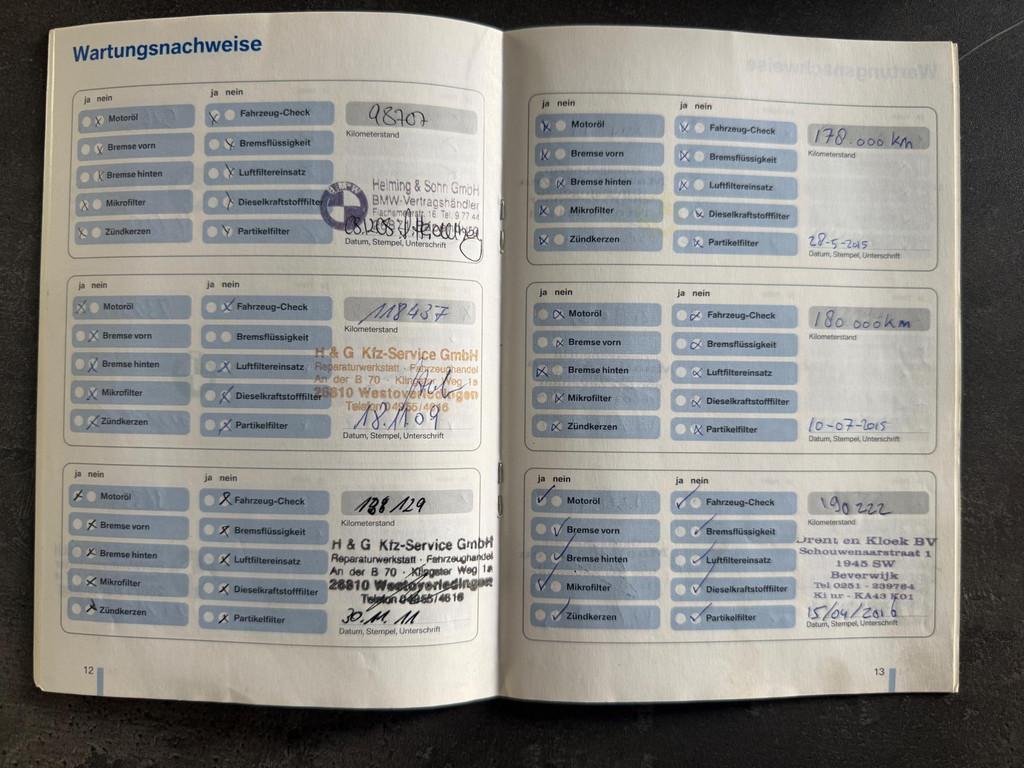 Wartungsnachweise
ja nein
ja nein
Motoröl
Fahrzeug-Check
98707
Kilometerstand
Bremse vorn
Bremsflüssigkeit
Bremse hinten
Luftfiltereinsatz
Mikrofilter
Dieselkraftstofffilter
Zündkerzen
Partikelfilter
BMW
Helming & Sohn GmbH
BMW-Vertragshändler
Tel. 9 77 44
Datum, Stempel, Unterschrift
ja nein
ja nein
Motoröl
Fahrzeug-Check
118437
Kilometerstand
Bremse vorn
Bremsflüssigkeit
Bremse hinten
Luftfiltereinsatz
Mikrofilter
Dieselkraftstofffilter
Zündkerzen
Partikelfilter
H & G Kfz-Service GmbH
Reparaturwerkstatt - Fahrzeughandel
An der B 70 - Klingster Weg 1a
26810 Westoverledingen
Telefon 04955/4616
18.11.09
Datum, Stempel, Unterschrift
ja nein
ja nein
Motoröl
Fahrzeug-Check
129
Kilometerstand
Bremse vorn
Bremsflüssigkeit
Bremse hinten
Luftfiltereinsatz
Mikrofilter
Dieselkraftstofffilter
Zündkerzen
Partikelfilter
H & G Kfz-Service GmbH
Reparaturwerkstatt - Fahrzeughandel
An der B 70 - Klingster Weg 1a
26810 Westoverledingen
Telefon 04955/4616
30.11.11
Datum, Stempel, Unterschrift
12
ja nein
ja nein
Motoröl
Fahrzeug-Check
178.000 km
Kilometerstand
Bremse vorn
Bremsflüssigkeit
Bremse hinten
Luftfiltereinsatz
Mikrofilter
Dieselkraftstofffilter
Zündkerzen
Partikelfilter
28-5-2015
Datum, Stempel, Unterschrift
ja nein
ja nein
Motoröl
Fahrzeug-Check
180.000km
Kilometerstand
Bremse vorn
Bremsflüssigkeit
Bremse hinten
Luftfiltereinsatz
Mikrofilter
Dieselkraftstofffilter
Zündkerzen
Partikelfilter
10-07-2015
Datum, Stempel, Unterschrift
ja nein
ja nein
Motoröl
Fahrzeug-Check
190 222
Kilometerstand
Bremse vorn
Bremsflüssigkeit
Bremse hinten
Luftfiltereinsatz
Mikrofilter
Dieselkraftstofffilter
Zündkerzen
Partikelfilter
Drent en Kloek BV
Schouwenaarstraat 1
1945 SW
Beverwijk
Tel 0251 - 239764
KI nr - KA43 K01
15/04/2016
Datum, Stempel, Unterschrift
13